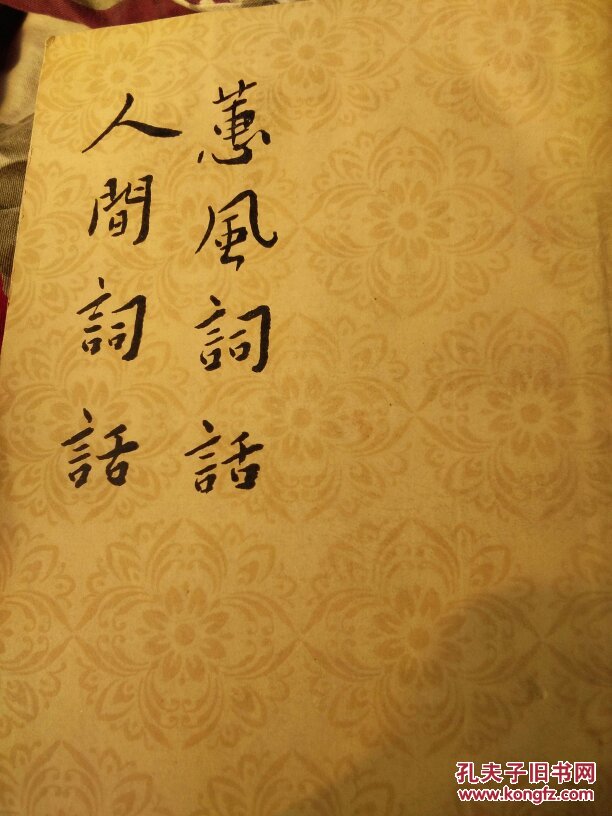 蕙風詞話
人間詞話
孔夫子旧书网
www.kongfz.com